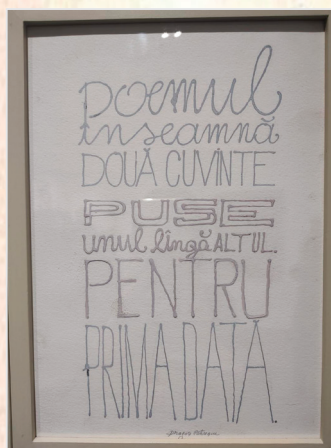 poemul
înseamnă
DOUĂ CUVINTE
PUSE
unul lîngă ALTUL.
PENTRU
PRIMA DATĂ